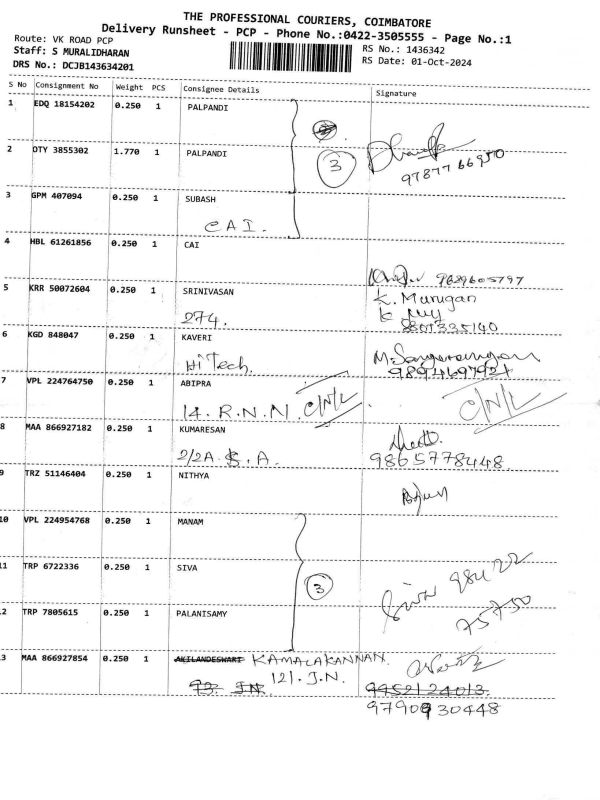 THE PROFESSIONAL COURIERS, COIMBATORE
Delivery Runsheet - PCP - Phone No.:0422-3505555 - Page No.:1
Route: VK ROAD PCP
Staff: S MURALIDHARAN
DRS No.: DCJB143634201
RS No.: 1436342
RS Date: 01-Oct-2024
S No Consignment No Weight PCS Consignee Details Signature
1 EDQ 18154202 0.250 1 PALPANDI
2 OTY 3855302 1.770 1 PALPANDI
3
9787766950
3 GPM 407094 0.250 1 SUBASH
CAI.
4 HBL 61261856 0.250 1 CAI
9689605797
5 KRR 50072604 0.250 1 SRINIVASAN K. Murugan
274.
6 KGD 848047 0.250 1 KAVERI
HiTech.
7 VPL 224764750 0.250 1 ABIPRA
14. R.N.N. C/N/L C/N/L
8 MAA 866927182 0.250 1 KUMARESAN
2/2A. S. A. 9865778448
9 TRZ 51146404 0.250 1 NITHYA
10 VPL 224954768 0.250 1 MANAM
11 TRP 6722336 0.250 1 SIVA
3
Siva 984122
75750
12 TRP 7805615 0.250 1 PALANISAMY
13 MAA 866927854 0.250 1 AKILANDESWARI KAMALAKANNAN.
93. J.N. 121. J.N. 9952124013
9790930448